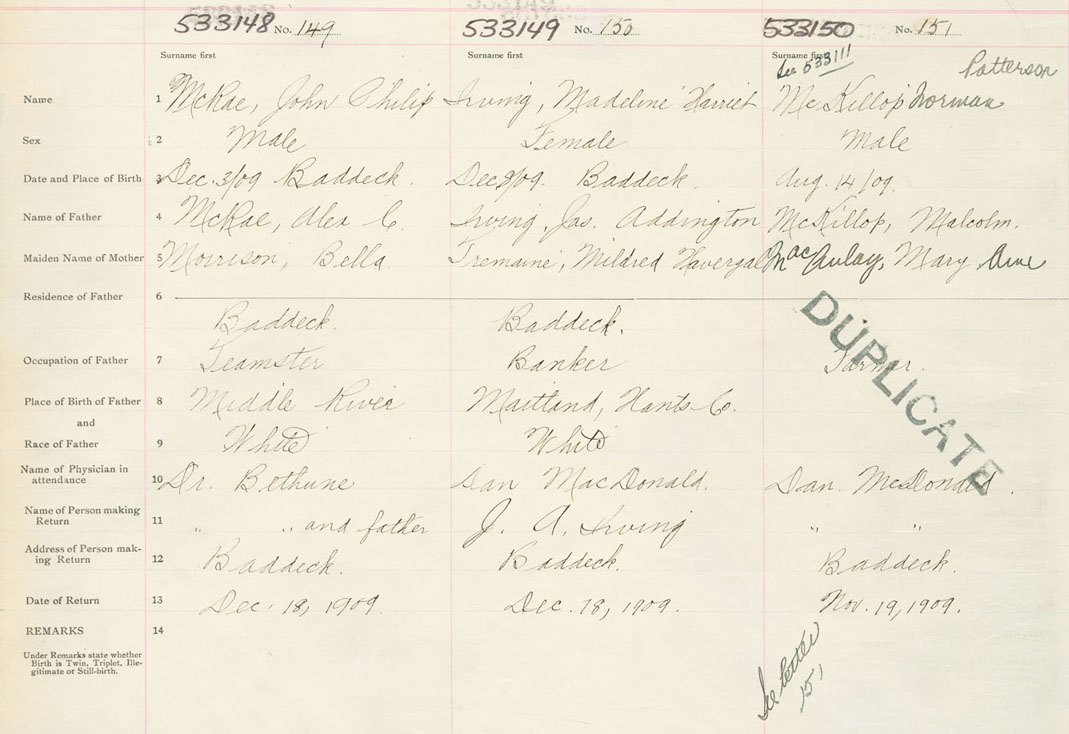 533148 No. 149 533149 No. 150 533150 No. 151
Surname first Surname first Surname first
See 533111
Patterson
Name 1 McRae, John Philip Irving, Madeline Harriet McKillop Norman
Sex 2 Male Female Male
Date and Place of Birth 3 Dec. 3/09 Baddeck. Dec 8/09. Baddeck. Aug. 14/09.
Name of Father 4 McRae, Alex C. Irving, Jas. Addington McKillop, Malcolm.
Maiden Name of Mother 5 Morrison, Bella. Tremaine, Mildred Havergal MacAulay, Mary Ann
Residence of Father 6
Baddeck. Baddeck.
Occupation of Father 7 Teamster Banker Farmer.
Place of Birth of Father 8 Middle River Maitland, Hants Co.
and
Race of Father 9 White White
Name of Physician in
attendance 10 Dr. Bethune Dan MacDonald. Dan. McDonald.
Name of Person making
Return 11 " " and father J. A. Irving " "
Address of Person mak-
ing Return 12 Baddeck. Baddeck. Baddeck.
Date of Return 13 Dec. 18, 1909. Dec. 18, 1909. Nov. 19, 1909.
REMARKS 14
Under Remarks state whether
Birth is Twin, Triplet, Ille-
gitimate or Still-birth.
DUPLICATE
See letter
151